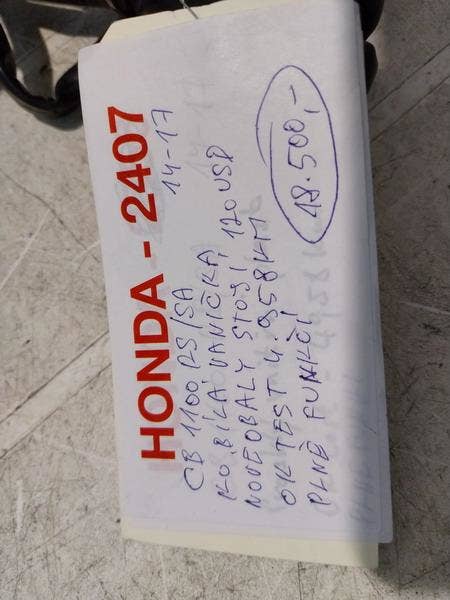 HONDA - 2407
14-17
CB 1100 RS/SA
KO, BÍLÁ VANIČKA,
NOVÉ OBALY STOJÍ 120 USD
OK TEST 4.958 KM
PLNĚ FUNKČÍ
18.500,-